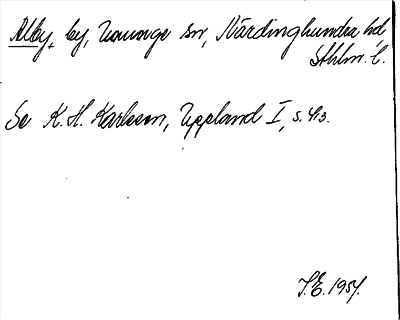 Alby, by, Ununge sn, Närdinghundra hd
Sthlm. l.
Se K. H. Karlsson, Uppland I, s. 413.
J.E. 1957.